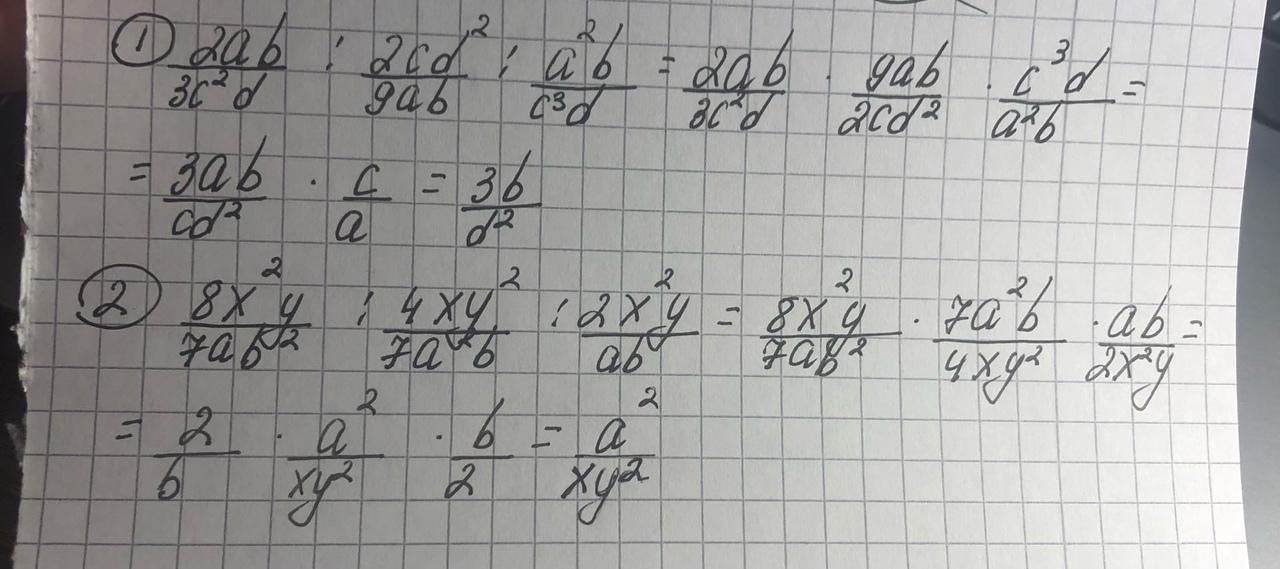 ① 2ab/3c²d : 2cd²/9ab : a²b/c³d = 2ab/3c²d · 9ab/2cd² · c³d/a²b =
= 3ab/cd² · c/a = 3b/d²
② 8x²y/7ab² : 4xy²/7a²b : 2x²y/ab = 8x²y/7ab² · 7a²b/4xy² · ab/2x²y =
= 2/b · a²/xy² · b/2 = a²/xy²